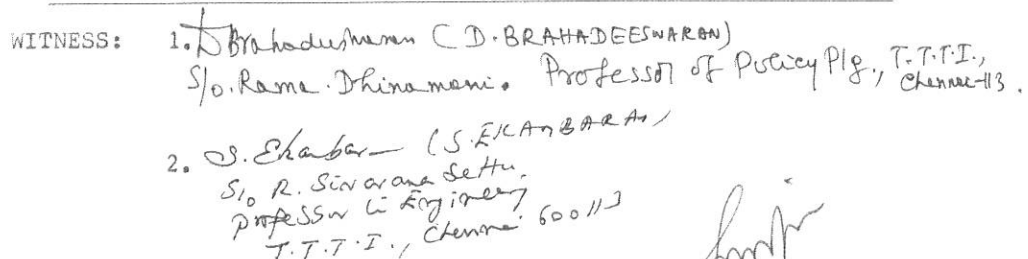 WITNESS: 1. D Brahadeeswaran (D. BRAHADEESWARAN)
S/o. Rama. Dhinamani. Professor of Policy Plg., T.T.T.I., Chennai-113.
2. S. Ekambar (S. EKAMBARAM)
S/o R. Sivarama Settu,
Professor in Engineering
T.T.T.I., Chennai 600113